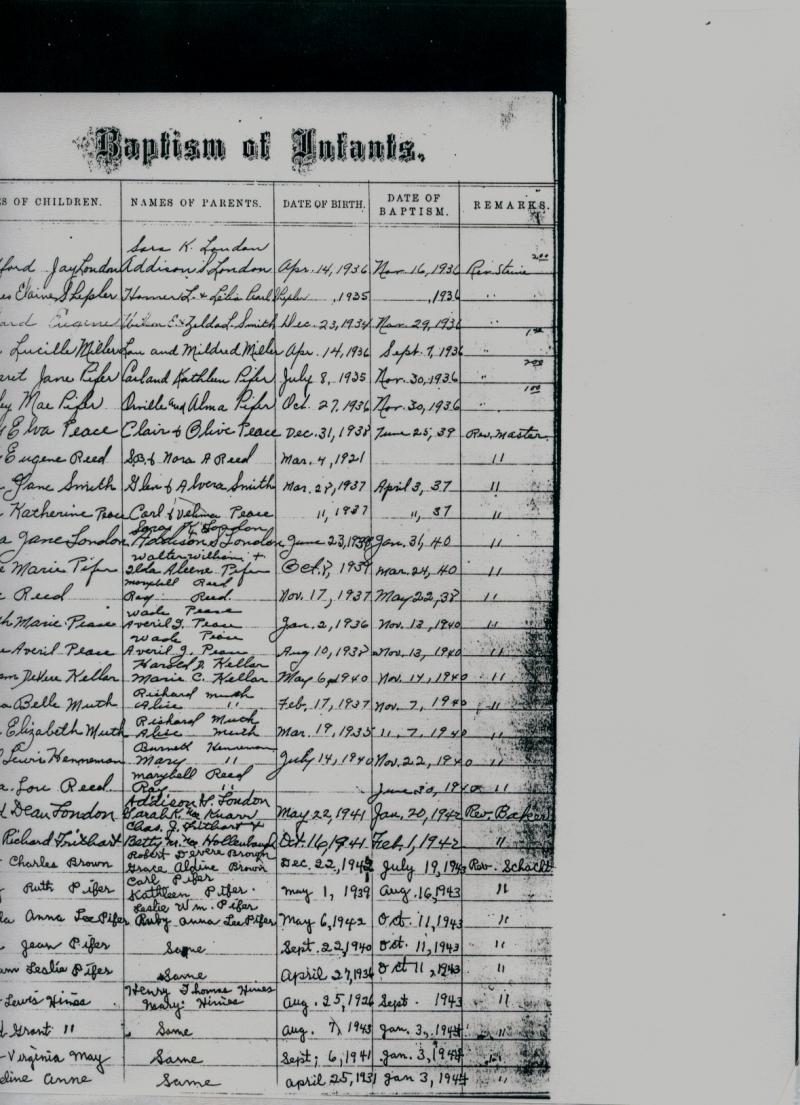 Baptism of Infants.
S OF CHILDREN. NAMES OF PARENTS. DATE OF BIRTH. DATE OF BAPTISM. REMARKS.
Sara K. London
ford Jay London Addison S London Apr. 14, 1936 Nov. 16, 1936 Rev. Stevie 2.00
Elaine Shepler Homer L. & Lelia Pearl Shepler , 1935 , 1936 "
ard Eugene E. & Zelda L. Smith Dec. 23, 1934 Nov. 29, 1936
Lucille Miller Lou and Mildred Miller Apr. 14, 1936 Sept. 7, 1936 " 1.00
aret Jane Pifer Carl and Kathleen Pifer July 8, 1935 Nov. 30, 1936 " 2.00
ey Mae Pifer Orville and Alma Pifer Oct. 27, 1936 Nov. 30, 1936 1.00
Elva Peace Clair & Olive Peace Dec. 31, 1938 June 25, 39 Rev. Master
Eugene Reed S.B. & Nora A Reed Mar. 4, 1921 "
Jane Smith Glen & Alvera Smith Mar. 28, 1937 April 3, 37 "
Katherine Peace Carl & Velma Peace ", 1937 ", 37 "
Sara K. London
a Jane London Addison S London June 23, 1939 Jan. 31, 40 "
Walter William +
e Marie Pifer Ilda Aleene Pifer Oct. 8, 1939 Mar. 24, 40 "
Marybell Reed
e Reed Ray Reed Nov. 17, 1937 May 22, 38 "
Wade Pease
h Marie Pease Averil I. Pease Jan. 2, 1936 Nov. 13, 1940 "
Wade Pease
e Averil Pease Averil I. Pease Aug 10, 1938 Nov. 13, 1940 "
Harold D. Kellar
am DeVere Kellar Marie C. Kellar May 6, 1940 Nov. 14, 1940 "
Richard Muth
a Belle Muth Alice " Feb. 17, 1937 Nov. 7, 1940 "
Richard Muth
Elizabeth Muth Alice Muth Mar. 19, 1935 11, 7, 1940 "
Burnett Henneman
Lewis Henneman Mary " July 14, 1940 Nov. 22, 1940 "
Marybell Reed
a. Lou Reed Ray " June 30, 1940 "
Addison H. London
d Dean London Sarah K. Knarr May 22, 1941 Jan. 20, 1942 Rev. Baker
Chas. J. Frithart +
Richard Frithart Betty M. Hollenbaugh Oct. 16, 1941 Feb. 1, 1942 "
Robert DeVere Brown
Charles Brown Grace Aldine Brown Dec. 22, 1942 July 19, 1943 Rev. Schacht
Carl Pifer
Ruth Pifer Kathleen Pifer. May 1, 1939 Aug. 16, 1943 "
Leslie Wm. Pifer
la Anna Lee Pifer Ruby Anna Lee Pifer May 6, 1942 Oct. 11, 1943 "
Jean Pifer Same Sept. 22, 1940 Oct. 11, 1943 "
am Leslie Pifer Same April 27, 1936 Oct 11, 1943 "
Henry Thomas Hines
Lewis Hines Mary Hines Aug. 25, 1926 Sept. 1943 "
d Grant " Same Aug. 7, 1943 Jan. 3, 1944 "
Virginia May Same Sept; 6, 1941 Jan. 3, 1944 "
line Anne Same April 25, 1931 Jan 3, 1944 "